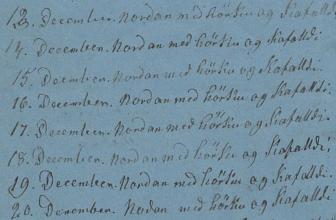 13. December. Nordan med hörku og Skafalldi.
14. December. Nordan med hörku og Skafalldi.
15. December. Nordan med hörku og Skafalldi.
16. December. Nordan med hörku og Skafalldi.
17. December. Nordan med hörku og Skafalldi.
18. December. Nordan med hörku og Skafalldi.
19. December. Nordan med hörku og Skafalldi.
20. December. Nordan med hörku og Skafalldi.